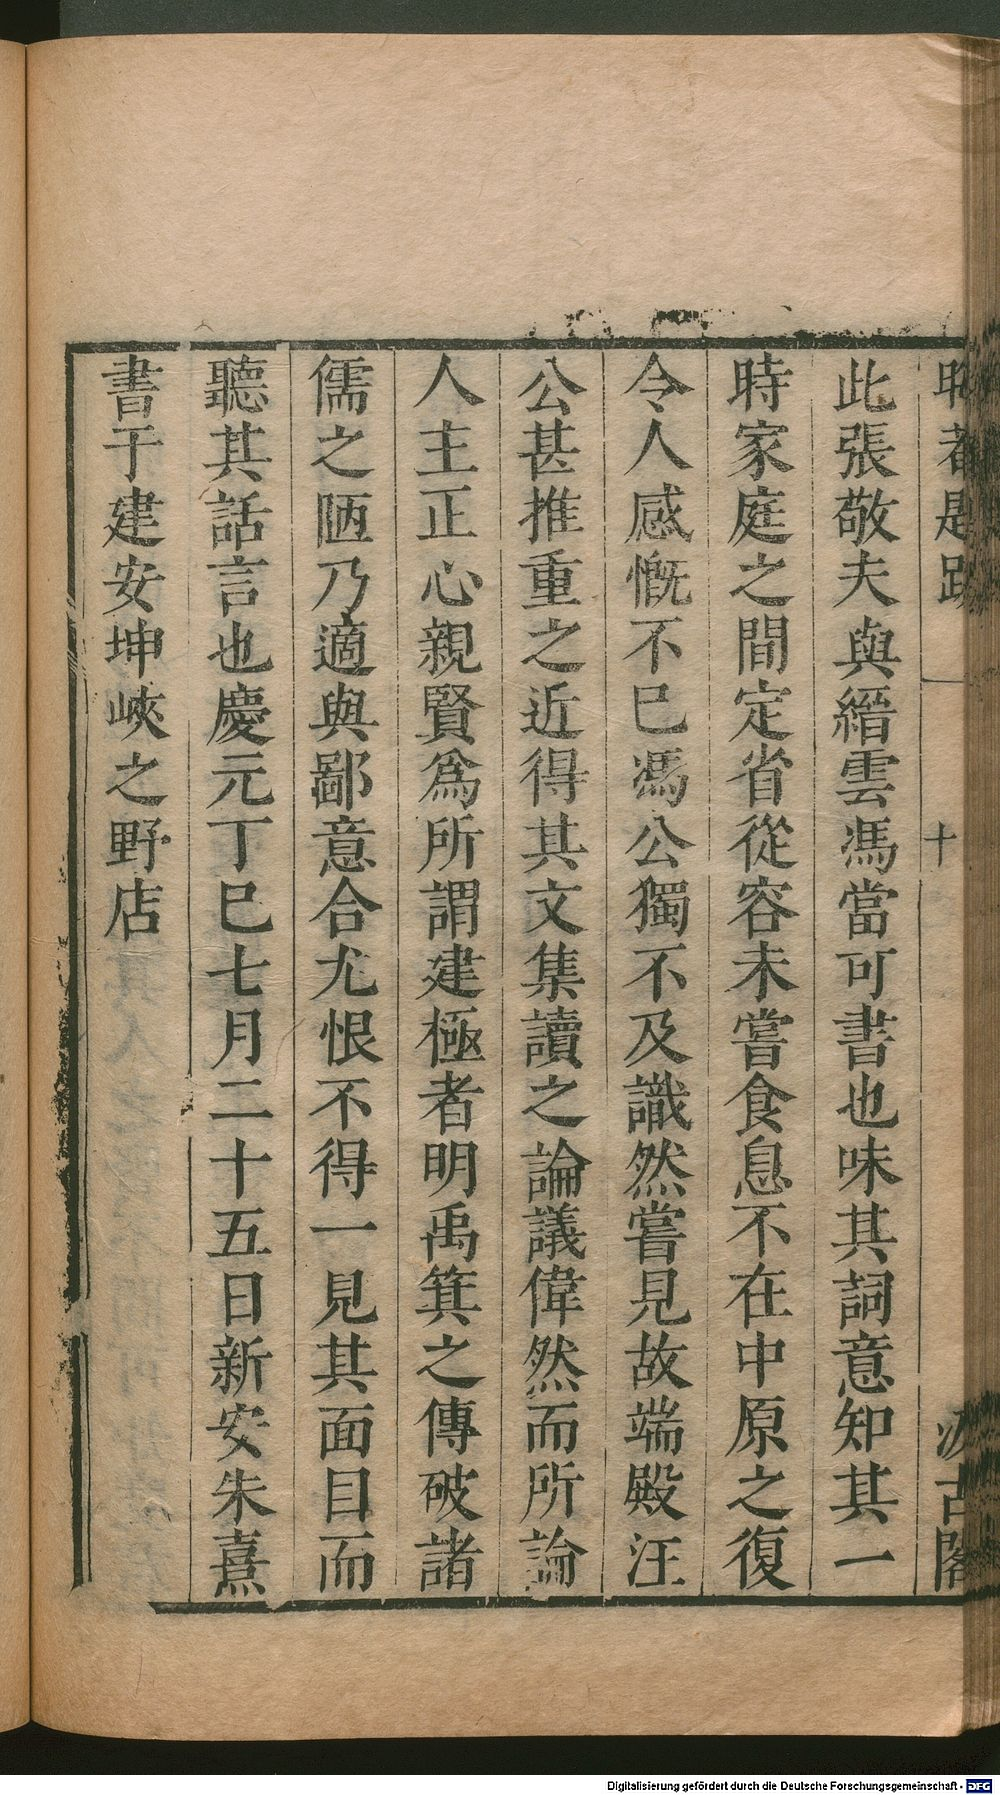 晦菴題跋
十
汲古閣
此張敬夫與縉雲馮當可書也味其詞意知其一
時家庭之間定省從容未嘗食息不在中原之復
令人感慨不已馮公獨不及識然嘗見故端殿汪
公甚推重之近得其文集讀之論議偉然而所論
人主正心親賢為所謂建極者明禹箕之傳破諸
儒之陋乃適與鄙意合尤恨不得一見其面目而
聽其話言也慶元丁巳七月二十五日新安朱熹
書于建安坤峽之野店
Digitalisierung gefördert durch die Deutsche Forschungsgemeinschaft - DFG